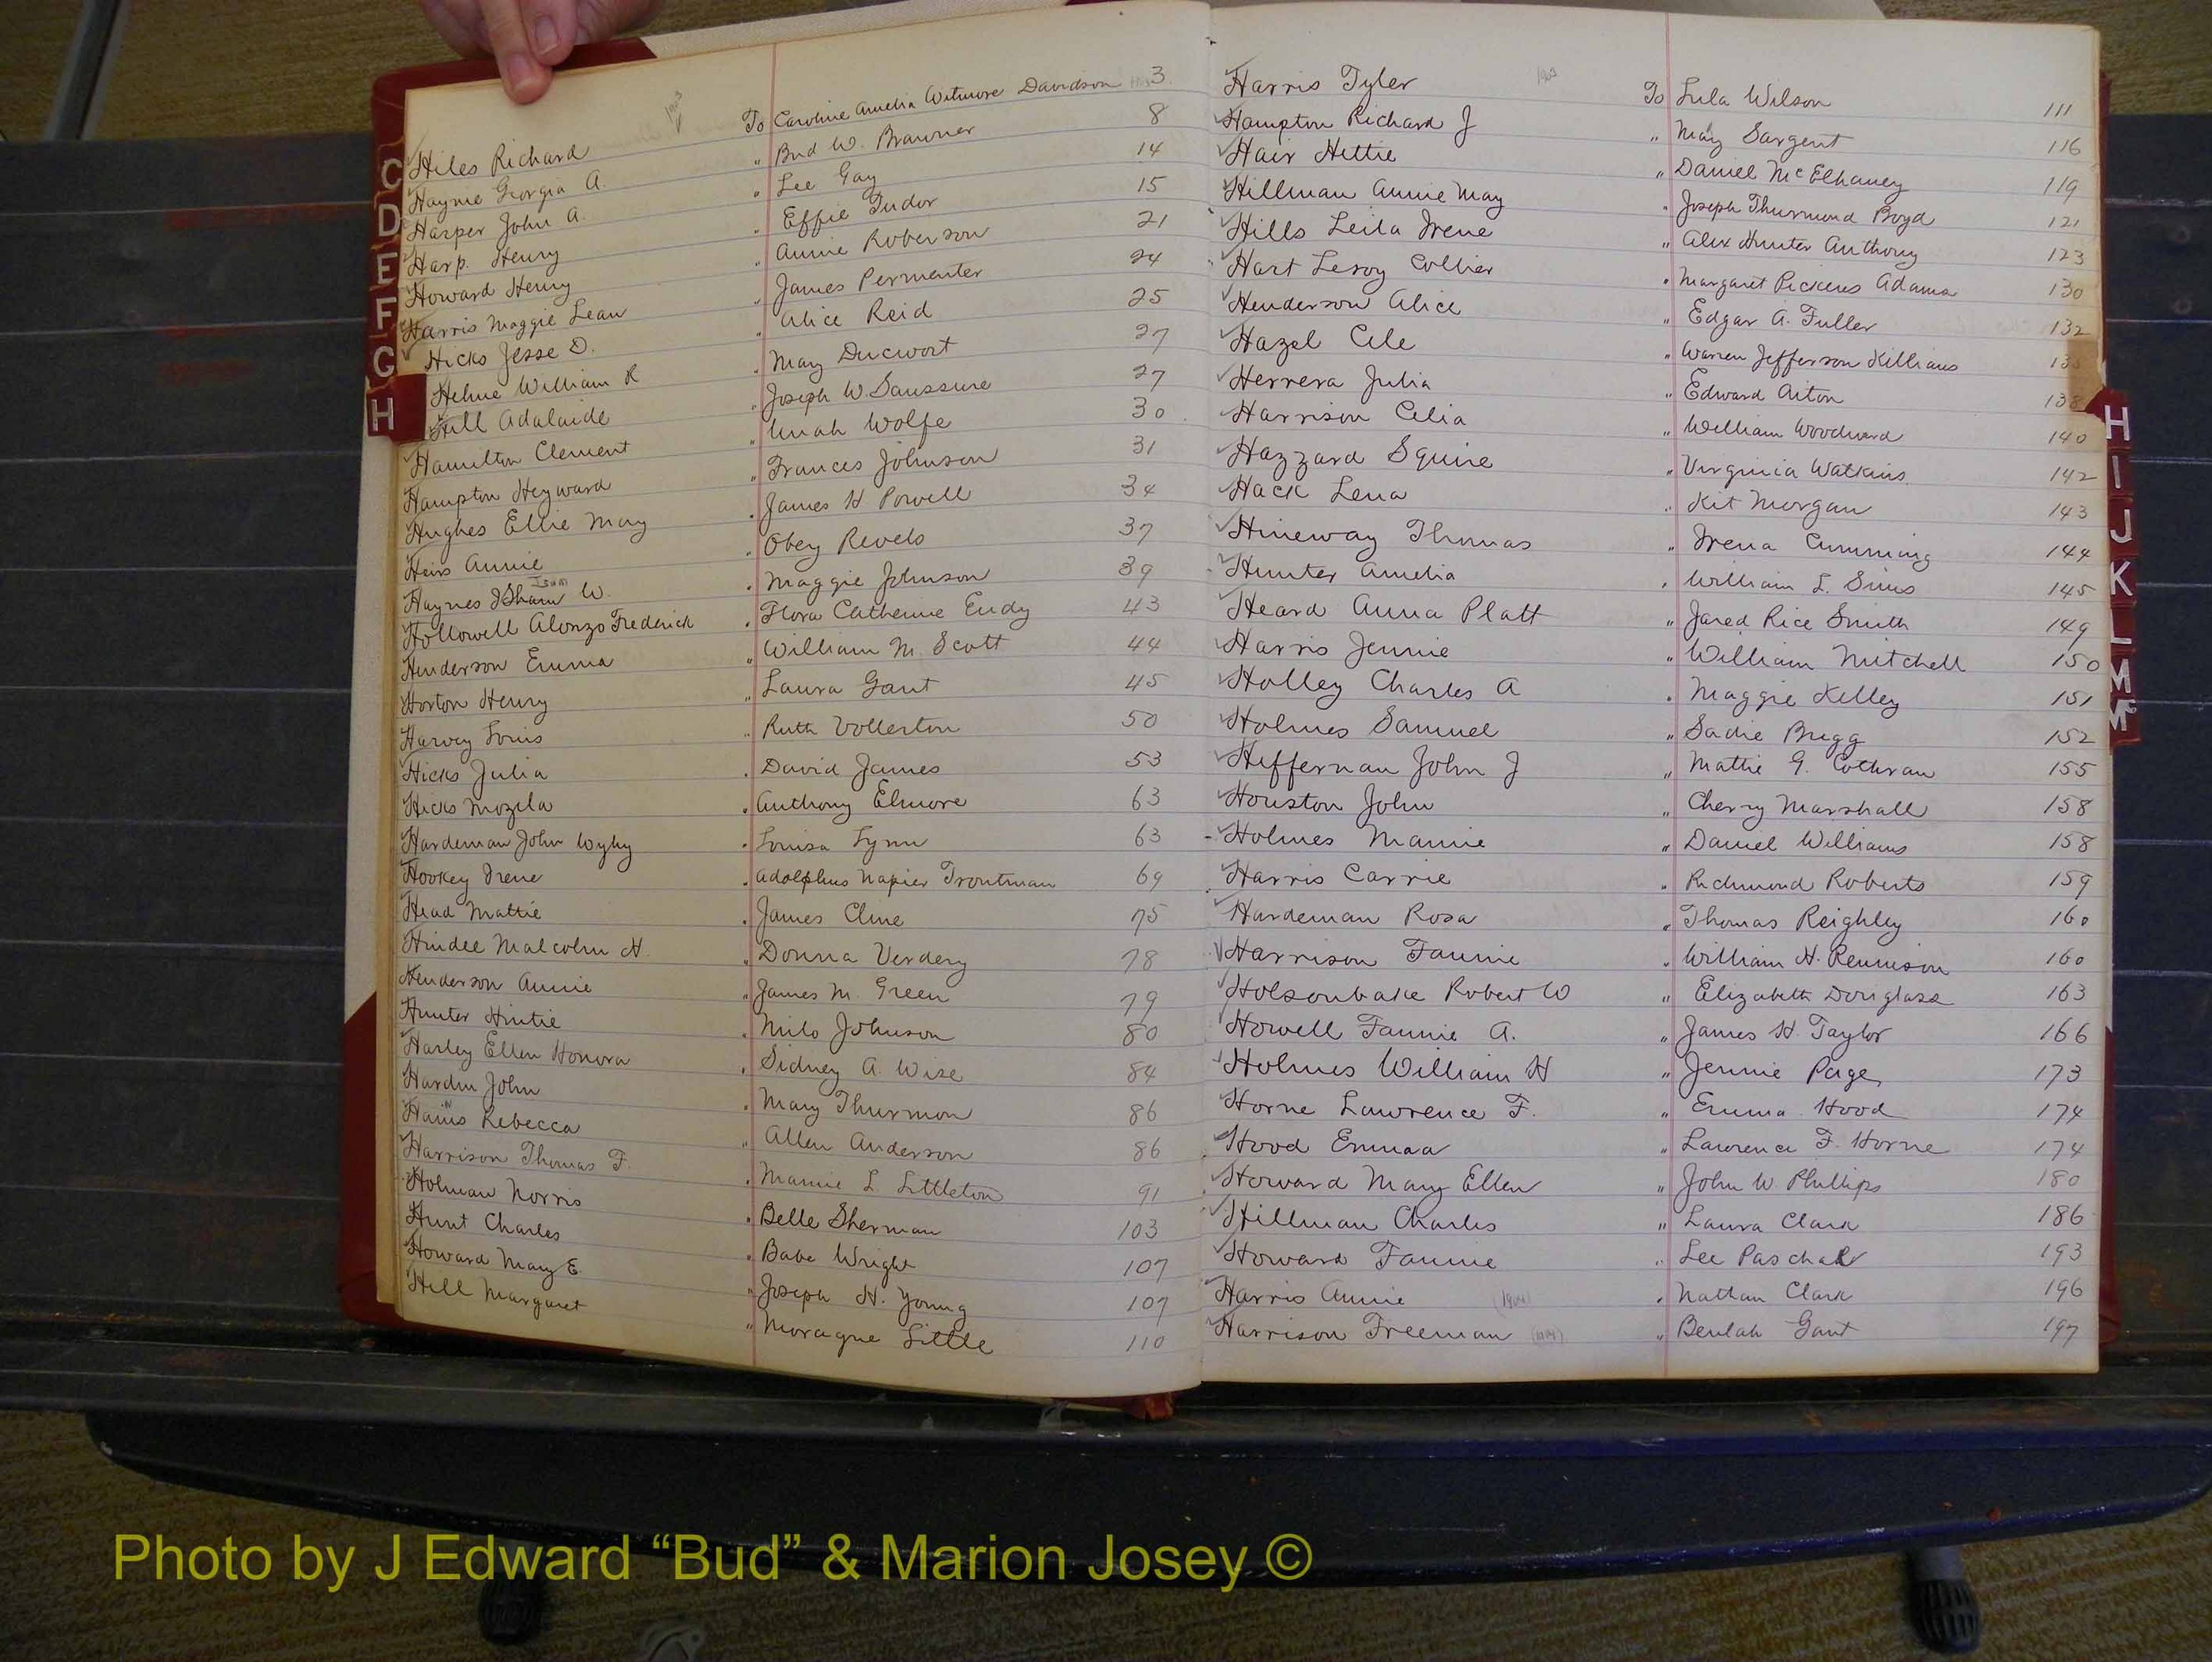 1903
Hiles Richard To Caroline Amelia Witmore Davidson 3
Haynie Georgia A. " Bud W. Brawner 8
Harper John A. " Lee Gay 14
Harp. Henry " Effie Tudor 15
Howard Henry " Annie Roberson 21
Harris Maggie Lean " James Permenter 24
Hicks Jesse D. " Alice Reid 25
Helme William R " May Ducwort 27
Hill Adalaide " Joseph W. Saussure 27
Hamilton Clement " Wolfe 30
Hampton Heyward " Frances Johnson 31
Hughes Ellie May " James H Powell 34
Heirs Annie " Obey Revels 37
Haynes Isham W. " Maggie Johnson 39
Hollowell Alonzo Frederick " Flora Catherine Eudy 43
Henderson Emma " William M. Scott 44
Horton Henry " Laura Gant 45
Harvey Louis " Ruth Vollerton 50
Hicks Julia " David James 53
Hicks Mozela " Anthony Elmore 63
Hardeman John Wyly " Louisa Lynn 63
Hookey Irene " Adolphus Napier Troutman 69
Head Mattie " James Cline 75
Hindee Malcolm H. " Donna Verdery 78
Henderson Annie " James M. Green 79
Hunter Hintie " Milo Johnson 80
Harley Ellen Honora " Sidney A. Wise 84
Hardin John " Mary Thurmon 86
Rebecca " Allen Anderson 86
Harrison Thomas F. " Mamie L. Littleton 91
Holman Norris " Belle Sherman 103
Hunt Charles " Babe Wright 107
Howard Mary E. " Joseph H. Young 107
Hill Margaret " Moragne Little 110
Harris Tyler 1903 To Lula Wilson 111
Hampton Richard J " May Sargent 116
Hair Hettie " Daniel McElhaney 119
Hillman Annie May " Joseph Thurmond Boyd 121
Hills Leila Irene " Alex Hunter Anthony 123
Hart Leroy Collier " Margaret Pickens Adams 130
Henderson Alice " Edgar A. Fuller 132
Hazel Cele " Warren Jefferson Killians
Herrera Julia " Edward Aiton 138
Harrison Celia " William Woodward 140
Hazzard Squire " Virginia Watkins 142
Hack Lena " Kit Morgan 143
Hineway Thomas " Irena Cumming 144
Hunter Amelia " William L. Sims 145
Heard Anna Platt " Jared Rice Smith 149
Harris Jennie " William Mitchell 150
Holley Charles A " Maggie Kelley 151
Holmes Samuel " Sadie Brigg 152
Heffernan John J " Mattie G. Cothran 155
Houston John " Cherry Marshall 158
Holmes Mamie " Daniel Williams 158
Harris Carrie " Richmond Roberts 159
Hardeman Rosa " Thomas Reighley 160
Harrison Fannie " William H. Rennison 160
Holsonbake Robert W " Elizabeth Douglass 163
Howell Fannie A. " James H. Taylor 166
Holmes William H " Jennie Page 173
Horne Lawrence F. " Emma Hood 174
Hood Emmaa " Lawrence F. Horne 174
Howard Mary Ellen " John W. Phillips 180
Hillman Charles " Laura Clark 186
Howard Fannie " Lee Paschal 193
Harris Annie " Nathan Clark 196
Harrison Freeman " Beulah Gant 197
C
D
E
F
G
H
H
I
J
K
L
M
Mc
Photo by J Edward “Bud” & Marion Josey ©